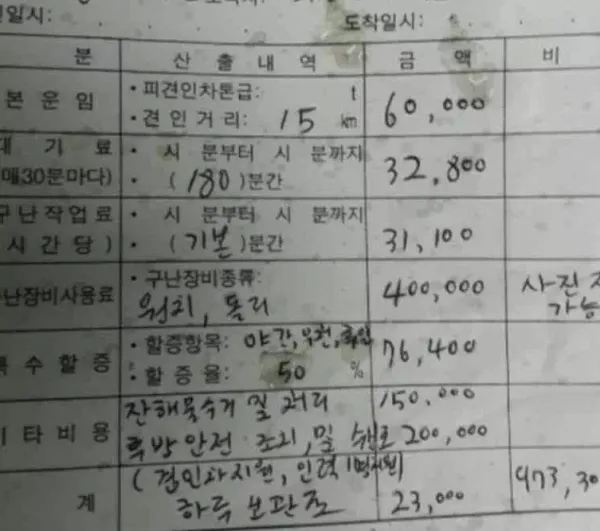 일시:
도착일시:
분 산출내역 금액 비
본운임 • 피견인차톤급: t
• 견인거리: 15 km 60,000
대기료 • 시 분부터 시 분까지
(매30분마다) • (180)분간 32,800
구난작업료 • 시 분부터 시 분까지
시간당) • (기본)분간 31,100
난장비사용료 • 구난장비종류: 400,000 사진
윈치, 돌리 가능
수할증 • 할증항목: 야간, 우천, 휴일 76,400
• 할증율: 50 %
잔해물수거 및 처리 150,000
타비용 후방안전 조치, 및 200,000
(견인차지원, 인력
계 하루 보관료 23,000 973,30